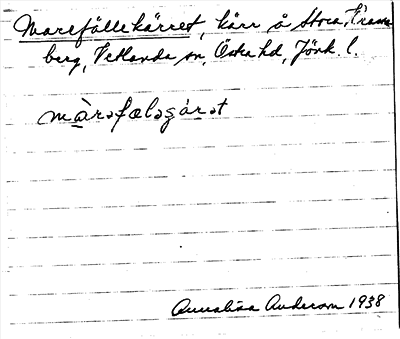 Marefällekärret, kärr å Stora Trans-
berg, Vetlanda sn, Östra hd, Jönk. l.
màrəfæləʂárət
Annalisa Anderson 1938